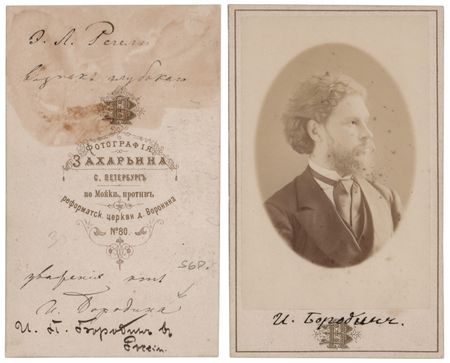 Э. Л. Регелю
в знакъ глубокаго
ФОТОГРАФІЯ
ЗАХАРЬИНА
С. ПЕТЕРБУРГЪ
по Мойкѣ, противъ
реформатск. церкви д. Воронина
№ 80.
568.
уваженія отъ
И. Бородина
И. П. Бородинъ въ
И. Бородинъ.